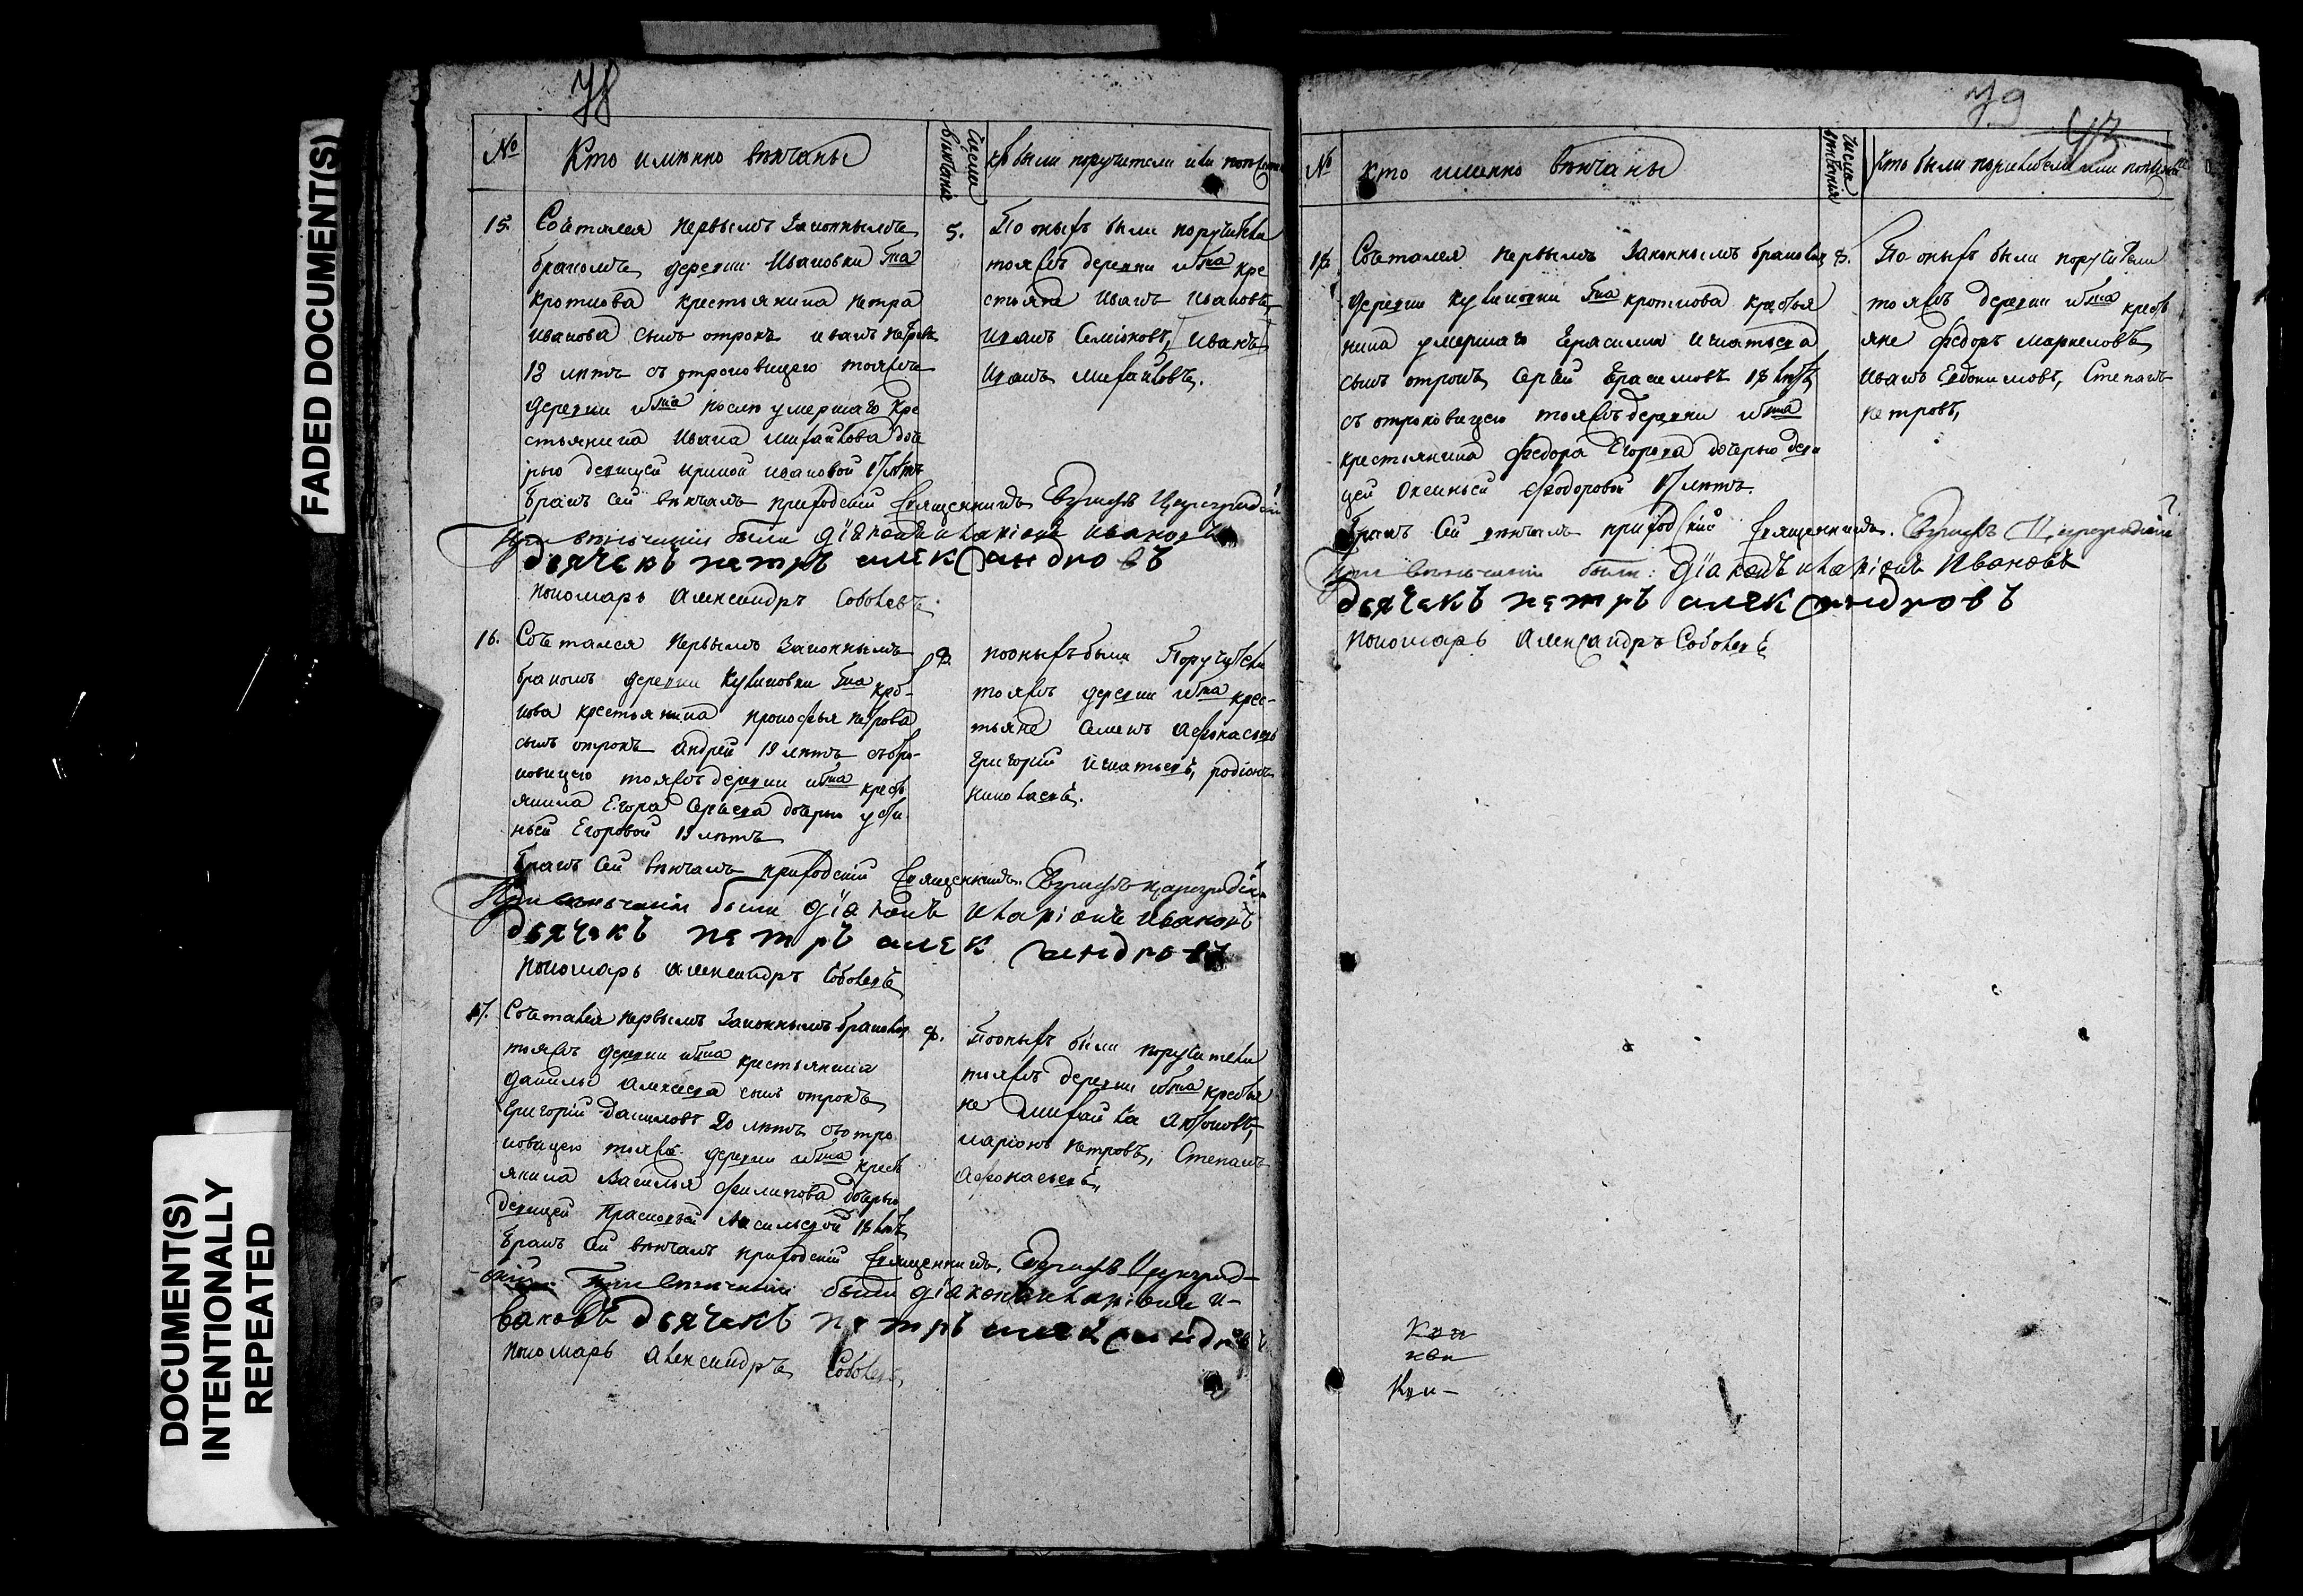 FADED DOCUMENT(S)
DOCUMENT(S)
INTENTIONALLY
REPEATED
78
№ Кто именно вѣнчаны Числа вѣнчанія Кто были поручители или
15. Сочетался первымъ Законнымъ 5.
бракомъ деревни Ивановки
крестьянина Петра
Иванова сынъ отрокъ Иванъ Петровъ
18 лѣтъ съ отроковицею тояжъ
деревни после умершаго кре
стьянина Ивана Михайлова доче
рью девицей Ириной Ивановой 17 лѣтъ
По оныхъ были поручители
тояжъ деревни кре
стьяне Иванъ Ивановъ,
Иванъ Семіоновъ, Иванъ
Иванъ Михайловъ.
Бракъ сей вѣнчалъ приходскій Священникъ
При вѣнчаніи были діаконъ Иларіонъ Ивановъ
дьячекъ петръ александровъ
Пономарь Александръ Соболевъ
16. Сочетался Первымъ Законнымъ 8.
бракомъ деревни
крестьянина Прокофья Петрова
сынъ отрокъ Андрей 19 лѣтъ съ отро-
ковицею тояжъ деревни кресть
янина Егора Сергеева дочерью
Егоровой 19 лѣтъ
по оныхъ были Поручители
тояжъ деревни крес-
тьяне Семенъ Афонасьевъ
Григорий Игнатьевъ, родіонъ
Николаевъ.
Бракъ сей вѣнчалъ приходскій Священникъ
При вѣнчаніи были діаконъ Иларіонъ Ивановъ
дьячекъ петръ александровъ
Пономарь Александръ Соболевъ
17. Сочетался первымъ Законнымъ бракомъ 8.
тояжъ деревни крестьянина
Данилы Алексеева сынъ отрокъ
Григорій Даниловъ 20 лѣтъ съ отро
ковицею тояжъ деревни кресть
янина Василья Филипова дочерью
девицей Прасковьей Васильевой 18 лѣтъ
По оныхъ были поручители
тояжъ деревни крестья
не Михайла
Ларіонъ Петровъ, Степанъ
Афонасьевъ,
Бракъ сей вѣнчалъ приходскій Священникъ,
При вѣнчаніи были діаконъ Иларіонъ И-
вановъ дьячекъ петръ александровъ
Пономарь Александръ Соболевъ
79
№ Кто именно вѣнчаны Числа вѣнчанія Кто были поручители или
18. Сочетался первымъ Законнымъ бракомъ 8.
деревни крестья
нина умершаго Герасима Игнатьева
сынъ отрокъ Сергѣй Герасимовъ 18 лѣтъ,
съ отроковицею тояжъ деревни
крестьянина Федора Егорова дочерью деви
цей Оксиньей Феодоровой 17 лѣтъ.
По оныхъ были поручители
тояжъ деревни кресть
яне Федоръ Маркеловъ,
Иванъ Евдокимовъ, Степанъ
Петровъ,
Бракъ сей вѣнчалъ приходскій Священникъ.
При вѣнчаніи были: діаконъ Иларіонъ Ивановъ
дьячекъ петръ александровъ
Пономарь Александръ Соболевъ